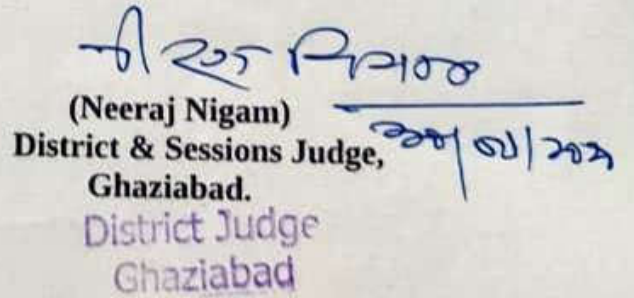 (Neeraj Nigam)
District & Sessions Judge,
Ghaziabad.
District Judge
Ghaziabad